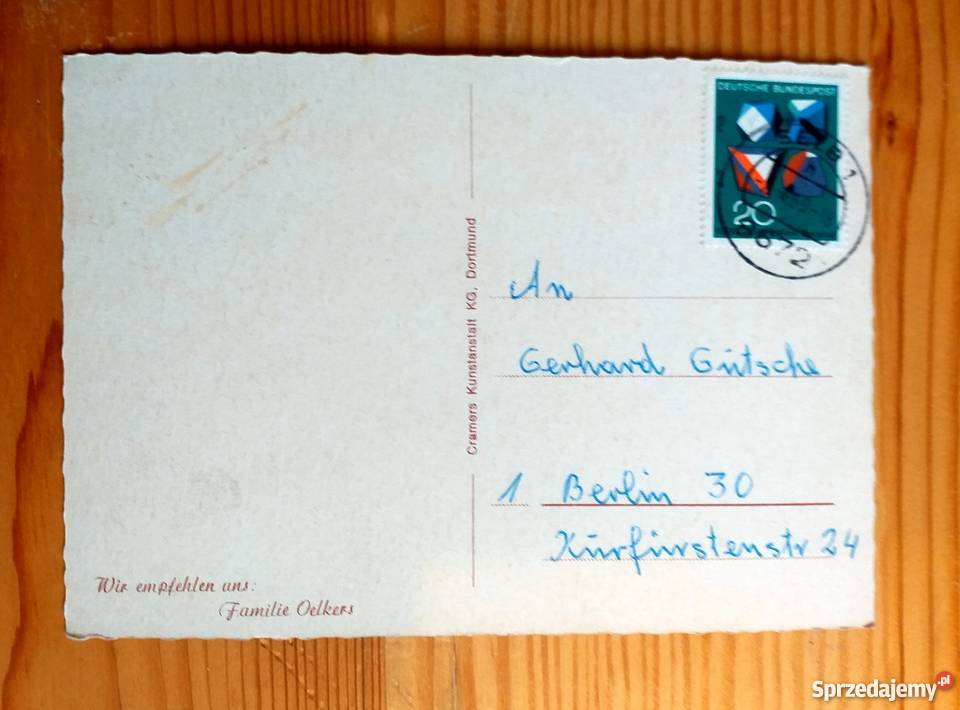 DEUTSCHE BUNDESPOST
20
An
Gerhard Gütsche
1 Berlin 30
Kurfürstenstr 24
Cramers Kunstanstalt KG, Dortmund
Wir empfehlen uns:
Familie Oelkers
Sprzedajemy.pl